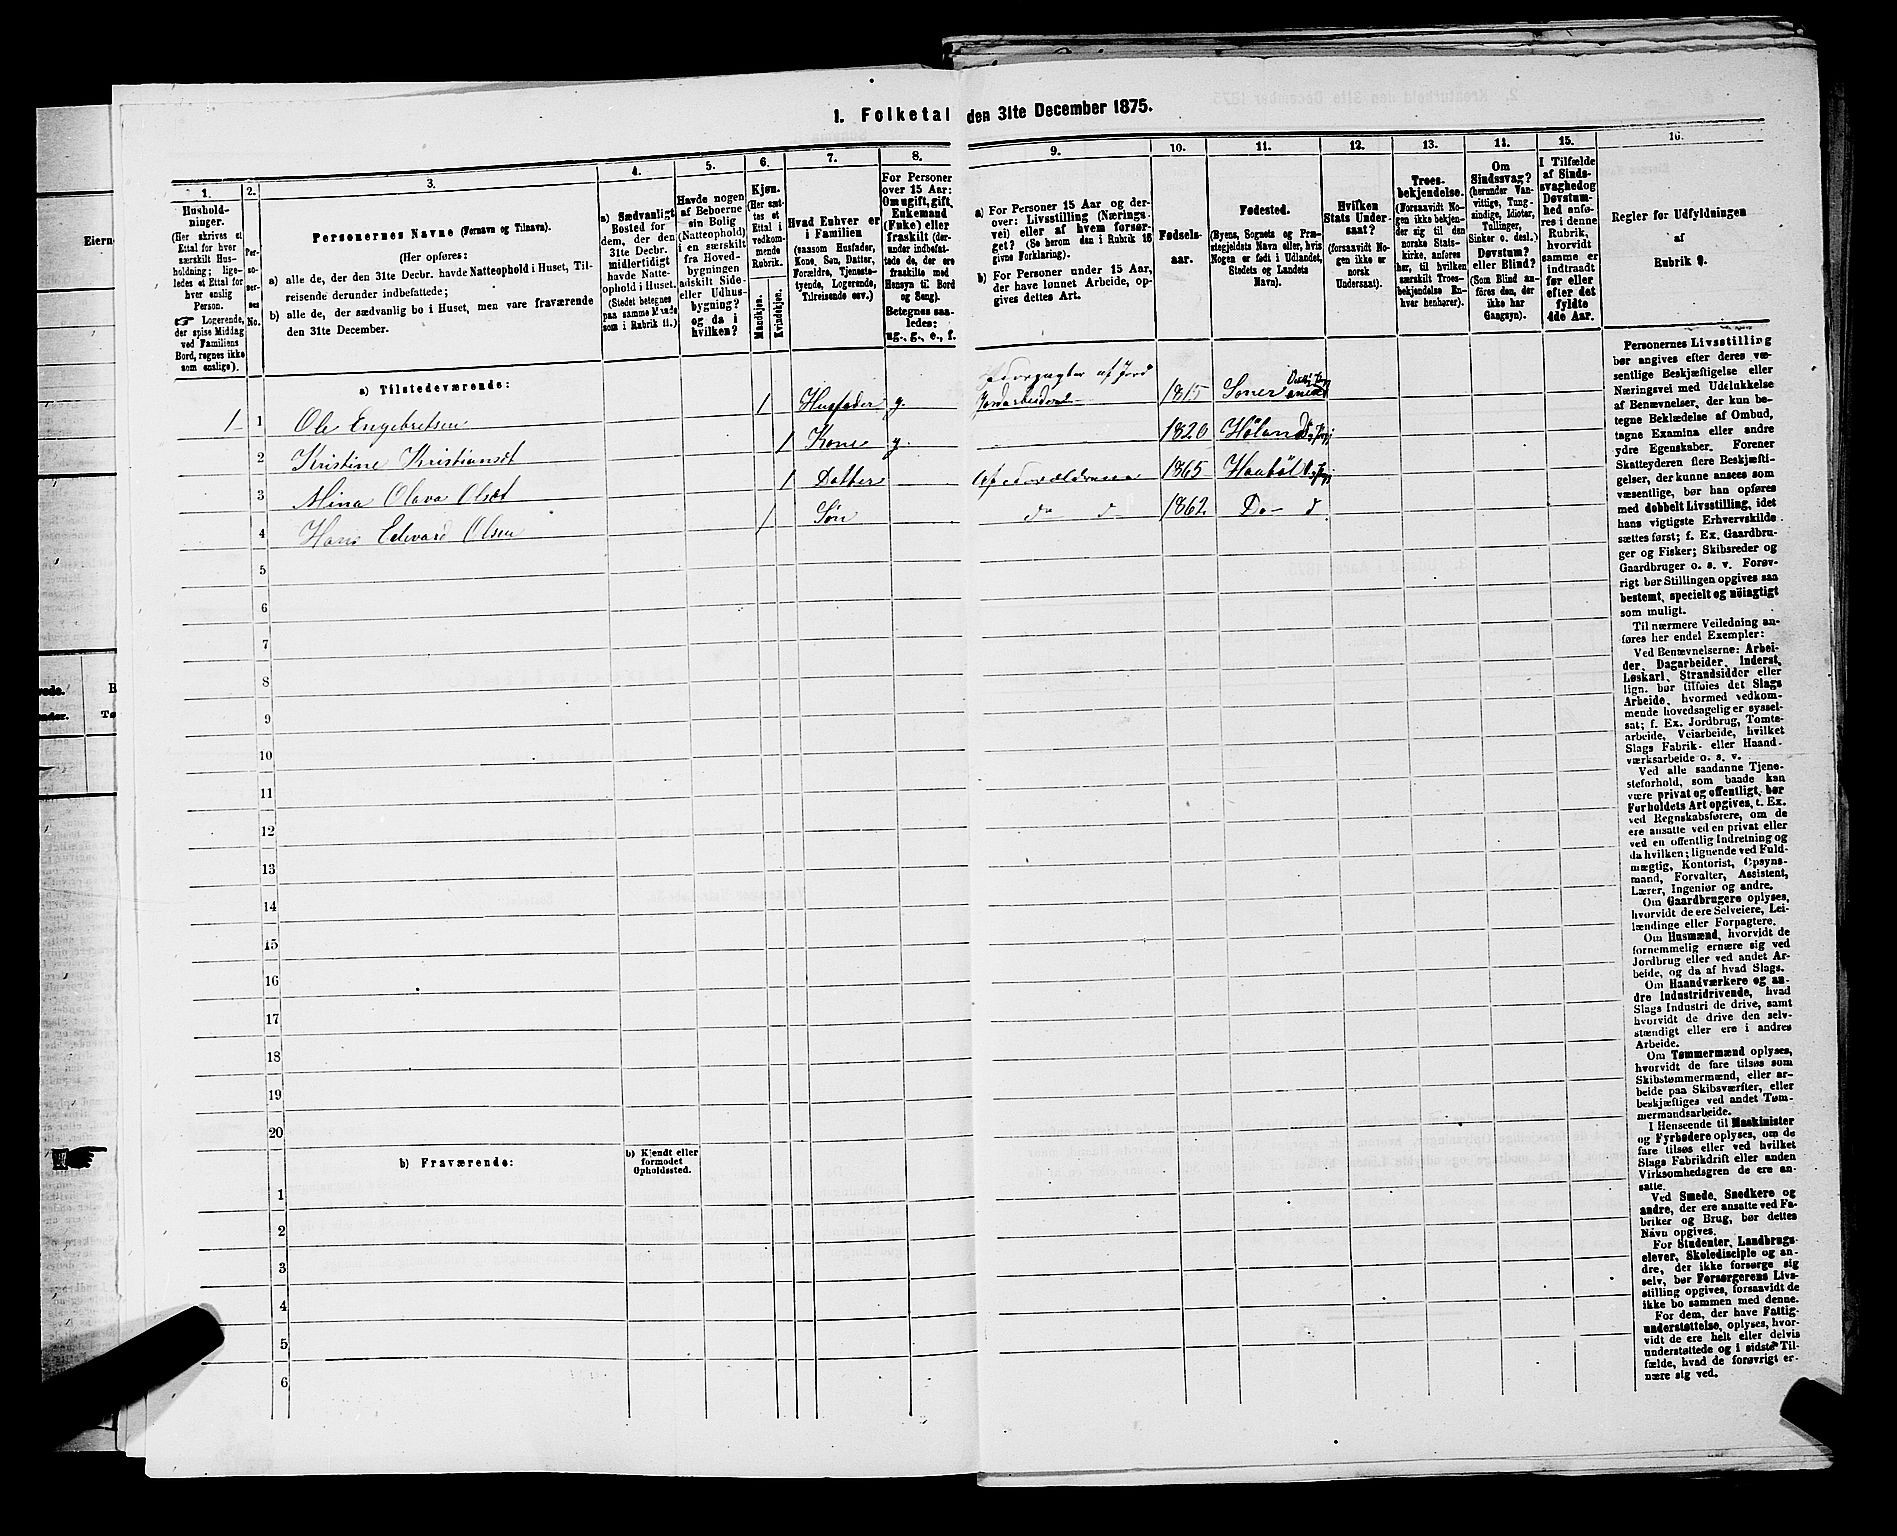 1. Folketal den 31te December 1875.
1.
Hushold-
ninger.
(Her skrives et
Ettal for hver
særskilt Hus-
holdning; lige-
ledes et Ettal for
hver enslig
Person.
☞ Logerende,
der spise Middag
ved Familiens
Bord, regnes ikke
som enslige).
2.
Per-
so-
ner-
nes
No.
3.
Personernes Navne (Fornavn og Tilnavn).
(Her opføres:
a) alle de, der den 31te Decbr. havde Natteophold i Huset, Til-
reisende derunder indbefattede;
b) alle de, der sædvanlig bo i Huset, men vare fraværende
den 31te December.
4.
a) Sædvanligt
Bosted for
dem, der den
31te Decbr.
midlertidigt
havde Natte-
ophold i Huset.
(Stedet betegnes
paa samme Maade
som i Rubrik 11.)
5.
Havde nogen
af Beboerne
sin Bolig
(Natteophold)
i en særskilt
fra Hoved-
bygningen
adskilt Side-
eller Udhus-
bygning?
og da i
hvilken?
6.
Kjøn.
(Her sæt-
tes et
Ettal i
vedkom-
mende
Rubrik.
Mandkjøn.
Kvindekjøn.
7.
Hvad Enhver er
i Familien
(saasom Husfader,
Kone, Søn, Datter,
Forældre, Tjeneste-
tyende, Logerende,
Tilreisende osv.)
8.
For Personer
over 15 Aar:
Om ugift, gift,
Enkemand
(Enke) eller
fraskilt (der-
under indbefat-
tede de, der ere
fraskilte med
Hensyn til Bord
og Seng).
Betegnes saa-
ledes:
ug., g., e., f.
9.
a) For Personer 15 Aar og der-
over: Livsstilling (Nærings-
vei) eller af hvem forsør-
get? (Se herom den i Rubrik 16
givne Forklaring).
b) For Personer under 15 Aar,
der have lønnet Arbeide, op-
gives dettes Art.
10.
Fødsels-
aar.
11.
Fødested.
(Byens, Sognets og Præ-
stegjeldets Navn eller, hvis
Nogen er født i Udlandet,
Stedets og Landets
Navn).
12.
Hvilken
Stats Under-
saat?
(forsaavidt No-
gen ikke er
norsk
Undersaat).
13.
Troes-
bekjendelse.
(Forsaavidt No-
gen ikke bekjen-
der sig til den
norske Stats-
kirke, anføres
her, til hvilken
særskilt Troes-
bekjendelse En-
hver henhører).
14.
Om
Sindssvag?
(herunder Van-
vittige, Tung-
sindige, Idioter,
Tullinger,
Sinker o. desl.)
Døvstum?
eller Blind?
(Som Blind an-
føres den, der
ikke har
Gangsyn).
15.
I Tilfælde
af Sinds-
svaghed og
Døvstum-
hed anfø-
res i denne
Rubrik,
hvorvidt
samme er
indtraadt
før eller
efter det
fyldte
4de Aar.
16.
Regler for Udfyldningen
af
Rubrik 9.
a) Tilstedeværende:
1 1 Ole Engebretsen 1 Husfader g. Forpagter af Jord Jordarbeider 1815 Soner
2 Kristine Kristiansdt 1 Kone g. 1820 Høland
3 Mina Olava Olsdt 1 Datter 1865 Haabøl
4 Hans Edvard Olsen 1 Søn do d 1862 Do d
5
6
7
8
9
10
11
12
13
14
15
16
17
18
19
20
b) Fraværende:
b) Kjendt eller
formodet
Opholdssted.
1
2
3
4
5
6
Personernes Livsstilling
bør angives efter deres væ-
sentlige Beskjæftigelse eller
Næringsvei med Udelukkelse
af Benævnelser, der kun be-
tegne Beklædelse af Ombud,
tagne Examina eller andre
ydre Egenskaber. Forener
Skatteyderen flere Beskjæfti-
gelser, der kunne ansees som
væsentlige, bør han opføres
med dobbelt Livsstilling, idet
hans vigtigste Erhvervskilde
sættes først; f. Ex. Gaardbru-
ger og Fisker; Skibsreder og
Gaardbruger o. s. v. Forøv-
rigt bør Stillingen opgives saa
bestemt, specielt og nöiagtigt
som muligt.
Til nærmere Veiledning an-
føres her endel Exempler:
Ved Benævnelserne: Arbei-
der, Dagarbeider, Inderst,
Løskarl, Strandsidder eller
lign. bør tilføies det Slags
Arbeide, hvormed vedkom-
mende hovedsagelig er syssel-
sat; f. Ex. Jordbrug, Tomte-
arbeide, Veiarbeide, hvilket
Slags Fabrik- eller Haand-
værksarbeide o. s. v.
Ved alle saadanne Tjene-
steforhold, som baade kan
være privat og offentligt, bør
Forholdets Art opgives, t. Ex.
ved Regnskabsførere, om de
ere ansatte ved en privat eller
ved en offentlig Indretning og
da hvilken; lignende ved Fuld-
mægtig, Kontorist, Opsyns-
mand, Forvalter, Assistent,
Lærer, Ingeniør og andre.
Om Gaardbrugere oplyses,
hvorvidt de ere Selveiere, Lei-
lændinge eller Forpagtere.
Om Husmænd, hvorvidt de
fornemmelig ernære sig ved
Jordbrug eller ved andet Ar-
beide, og da af hvad Slags.
Om Haandværkere og an-
dre Industridrivende, hvad
Slags Industri de drive, samt
hvorvidt de drive den selv-
stændigt eller ere i andres
Arbeide.
Om Tømmermænd oplyses,
hvorvidt de fare tilsøs som
Skibstømmermænd, eller ar-
beide paa Skibsværfter, eller
beskjæftiges ved andet Tøm-
mermandsarbeide.
I Henseende til Maskinister
og Fyrbødere oplyses, om de
fare tilsøs eller ved hvilket
Slags Fabrikdrift eller anden
Virksomhedsgren de ere an-
satte.
Ved Smede, Snedkere og
andre, der ere ansatte ved Fa-
briker og Brug, bør dettes
Navn opgives.
For Studenter, Landbrugs-
elever, Skoledisciple og an-
dre, der ikke forsørge sig
selv, bør Forsørgerens Livs-
stilling opgives, forsaavidt de
ikke bo sammen med denne.
For dem, der have Fattig-
understøttelse, oplyses, hvor-
vidt de ere helt eller delvis
understøttede og i sidste Til-
fælde, hvad de forøvrigt er-
nære sig ved.